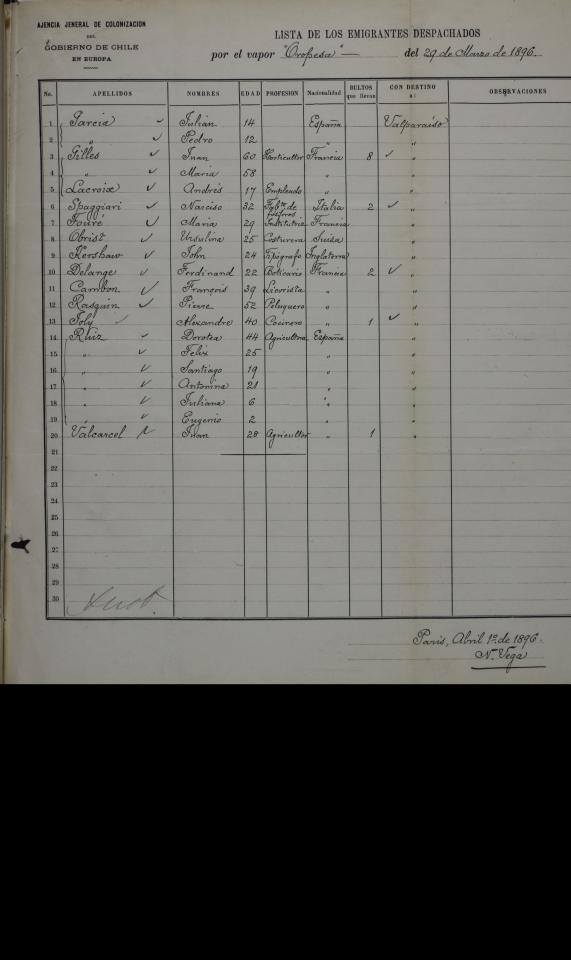 AJENCIA JENERAL DE COLONIZACION
DEL
GOBIERNO DE CHILE
EN EUROPA
LISTA DE LOS EMIGRANTES DESPACHADOS
por el vapor "Oropesa" — del 29 de Marzo de 1896.
No. APELLIDOS NOMBRES EDAD PROFESION Nacionalidad BULTOS que llevan CON DESTINO a: OBSERVACIONES
1 Garcia Julian 14 España Valparaiso
2 " Pedro 12 " "
3 Gilles Juan 60 Horticultor Francia 8 "
4 " Maria 58 " "
5 Lacroix Andrés 17 Empleado " "
6 Spaggiari Narciso 32 Fabte. de fósforos Italia 2 "
7 Fouré Maria 29 Institutriz Francia "
8 Obrist Ursulina 25 Costurera Suiza "
9 Kershaw John 24 Tipógrafo Inglaterra "
10 Delange Ferdinand 22 Boticario Francia 2 "
11 Cambon François 39 Licorista " "
12 Rasquin Pierre 52 Peluquero " "
13 Joly Alexandre 40 Cocinero " 1 "
14 Ruiz Dorotea 44 Agricultora España "
15 " Felix 25 " "
16 " Santiago 19 " "
17 " Antonina 21 " "
18 " Juliana 6 " "
19 " Eugenio 2 " "
20 Valcarcel Juan 28 Agricultor " 1 "
21
22
23
24
25
26
27
28
29
30
Paris, Abril 1º de 1896.
N. Vega